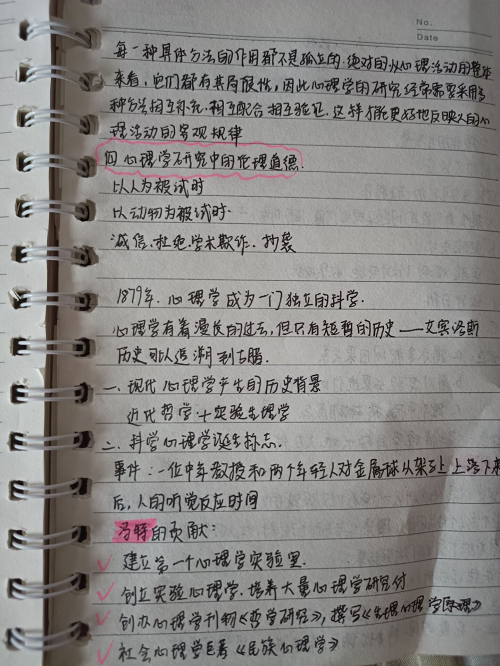 No.
Date
每一种具体方法的作用都不是孤立的.绝对的从心理活动的整体
来看,它们都有其局限性,因此心理学的研究经常需要采用多
种方法相互补充.相互配合相互验证.这样才能更好地反映人的心
理活动的客观规律
四 心理学研究中的伦理道德.
以人为被试时
以动物为被试时.
诚信.杜绝.学术欺诈.抄袭
1879年.心理学成为一门独立的科学.
心理学有着漫长的过去,但只有短暂的历史——艾宾浩斯
历史可以追溯到古腊.
一.现代心理学产生的历史背景
近代哲学+实验生理学
二.科学心理学诞生标志.
事件:一位中年教授和两个年轻人对金属球从架子上上落下来
后,人的听觉反应时间
冯特的贡献:
✓ 建立第一个心理学实验室.
✓ 创立实验心理学.培养大量心理学研究付
✓ 创办心理学刊物《哲学研究》,撰写《生理心理学原理》
✓ 社会心理学巨著《民族心理学》